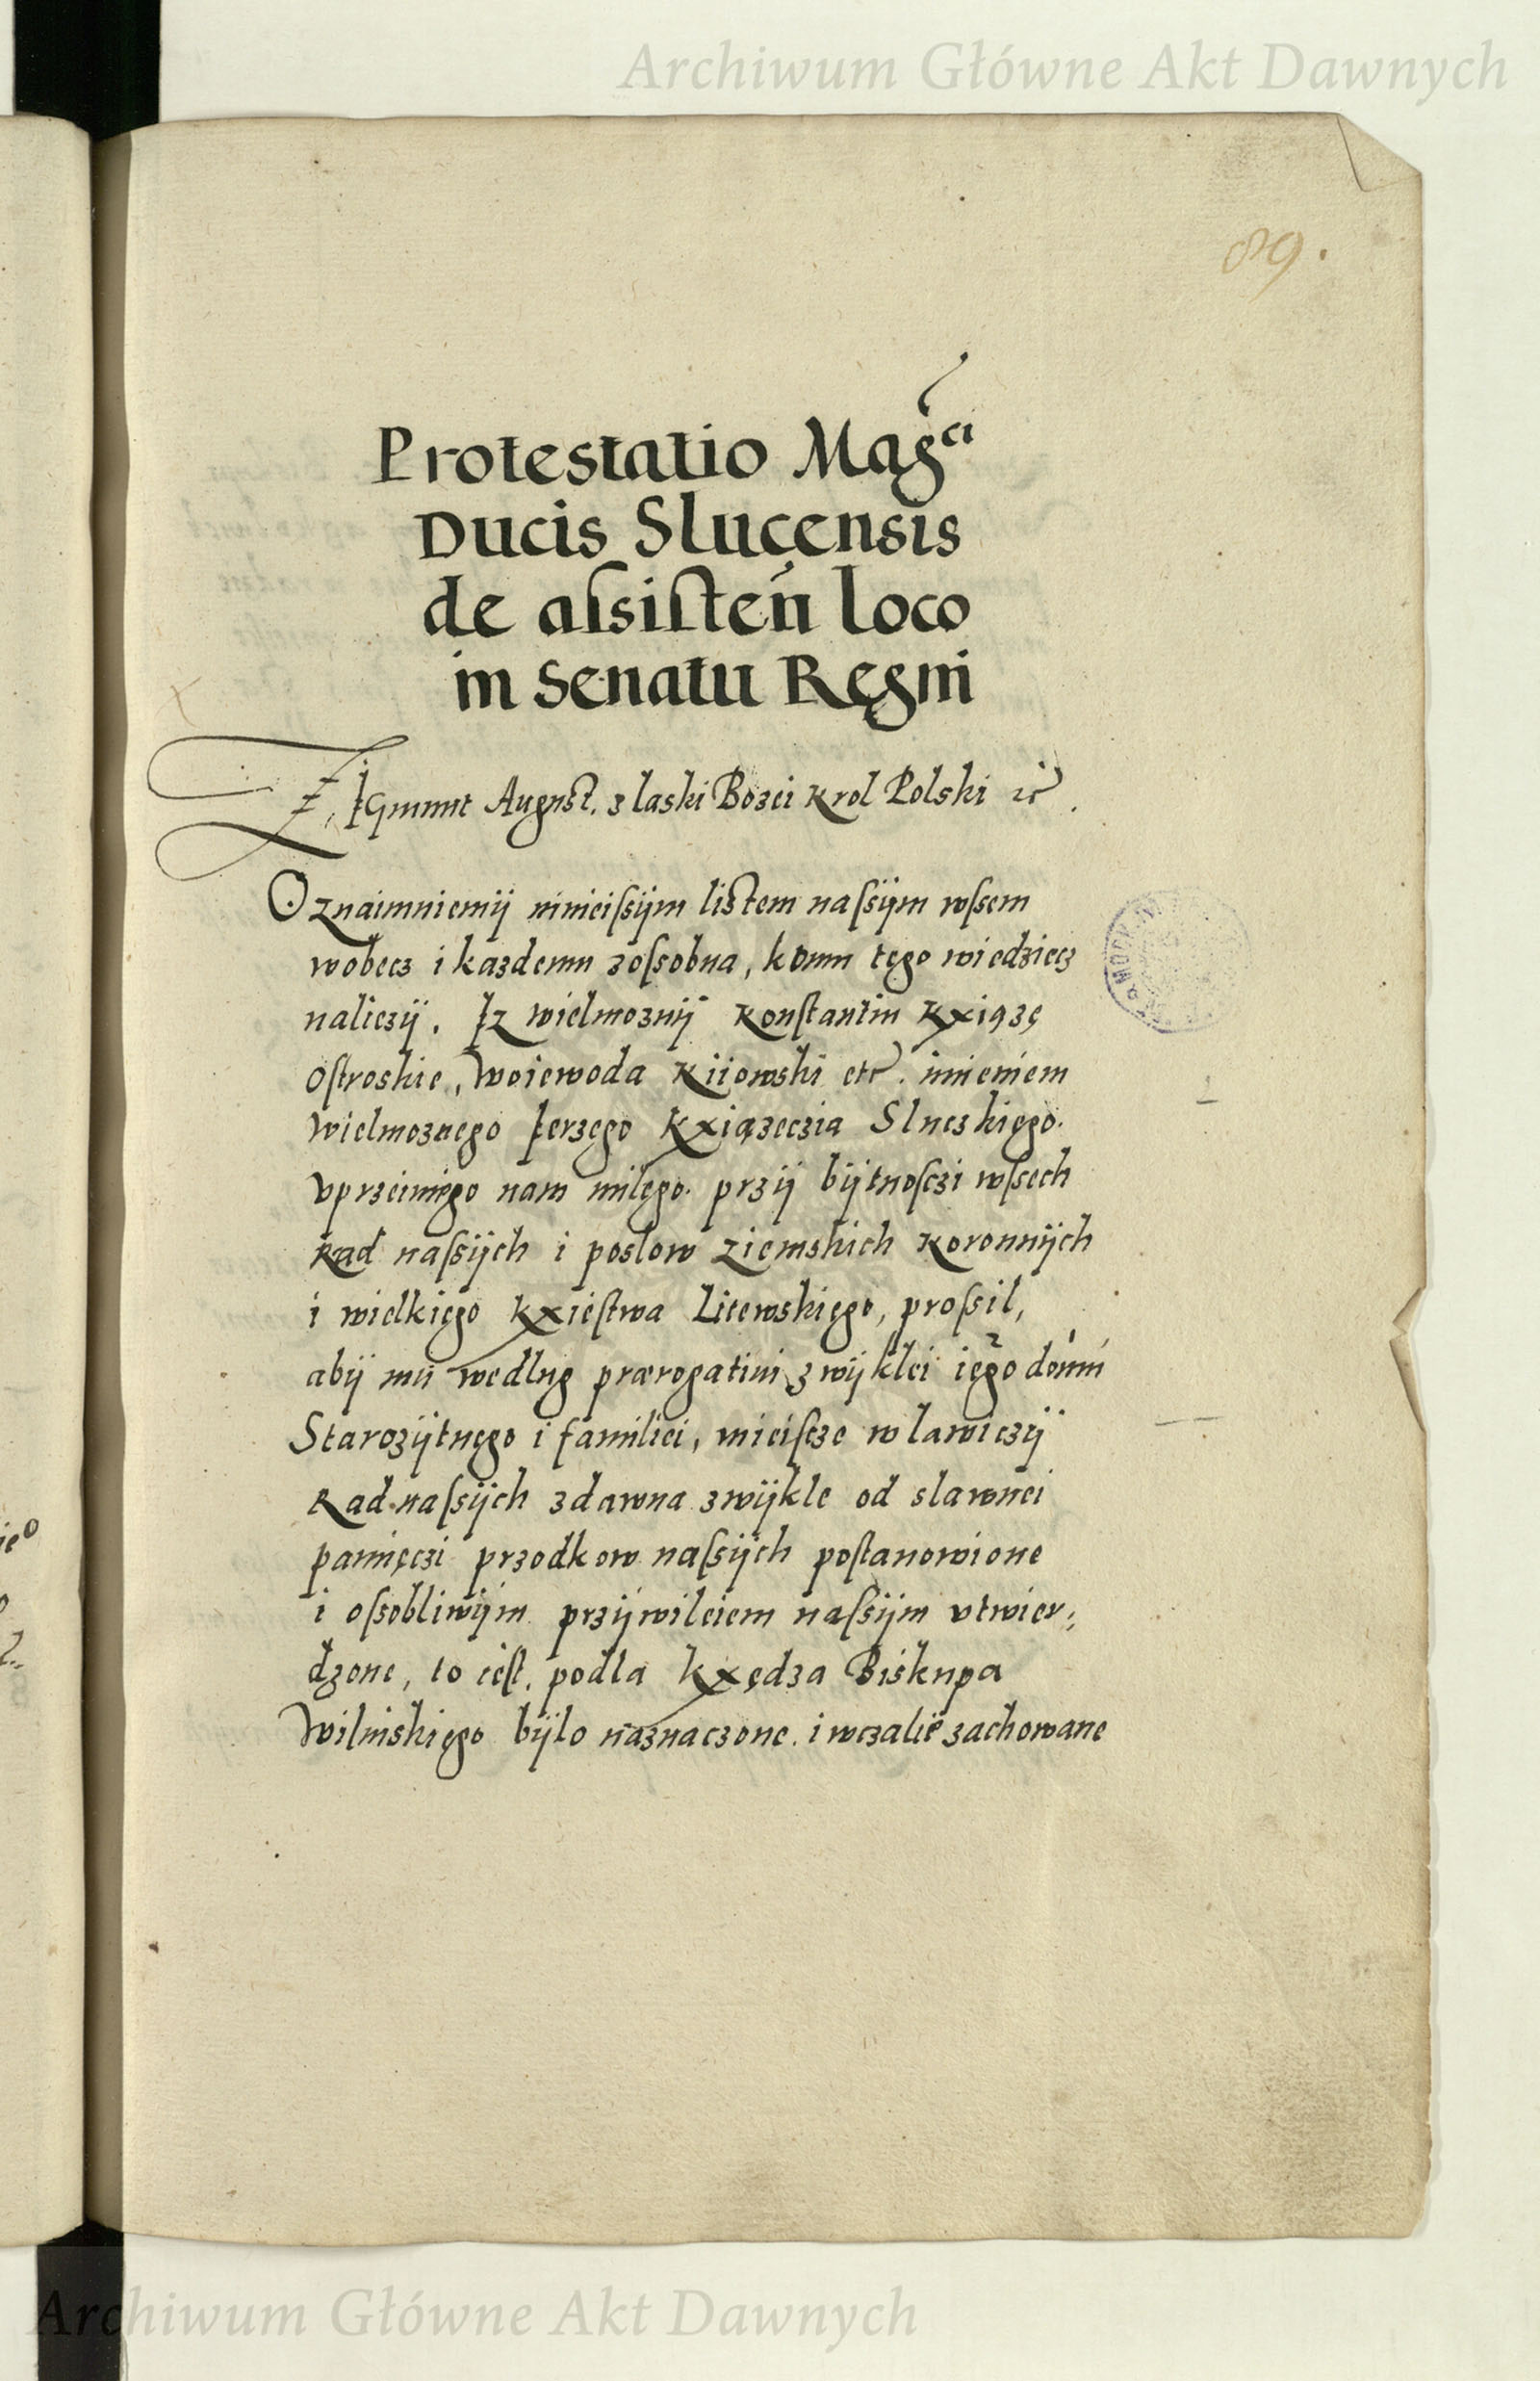 Archiwum Główne Akt Dawnych
89.
Protestatio Mag^ci
Ducis Slucensis
de aſsiſteń loco
in Senatu Regni
ZIGmunt Auguſt. z laski Bozei Krol Polski etc.
Oznaimniemÿ ninieiſsÿm liſtem naſsÿm wſsem
wobecz i kazdemu zoſsobna, komu tego wiedziecz
naliezÿ. Iz wielmoznÿ Konſtantin Kxiązę
Oſtroskie, Woiewoda Kiiowski etc. imieniem
Wielmoznego Ierzego Kxiązeczia Sluczkięgo.
vprzeimęgo nam milęgo. przÿ bÿtnoſczi wſsech
Rad naſsÿch i poslow ziemskich Koronnÿch
i wielkięgo Kxieſtwa Litewskięgo, proſsil,
abÿ mu wedlug prærogatiui zwÿklei ięgo domu
Starozÿtnęgo i familiei, mieiſcze w lawiczÿ
Rad naſsÿch zdawna zwÿkle od slawnei
pamięczi przodkow naſsÿch poſtanowione
i oſsobliwÿm przÿwileiem naſsÿm vtwier⸗
dzone, to ieſt, podla Kxędza Biskupa
Wilinskięgo bÿlo naznaczone. i wczalie zachowane
Archiwum Główne Akt Dawnych